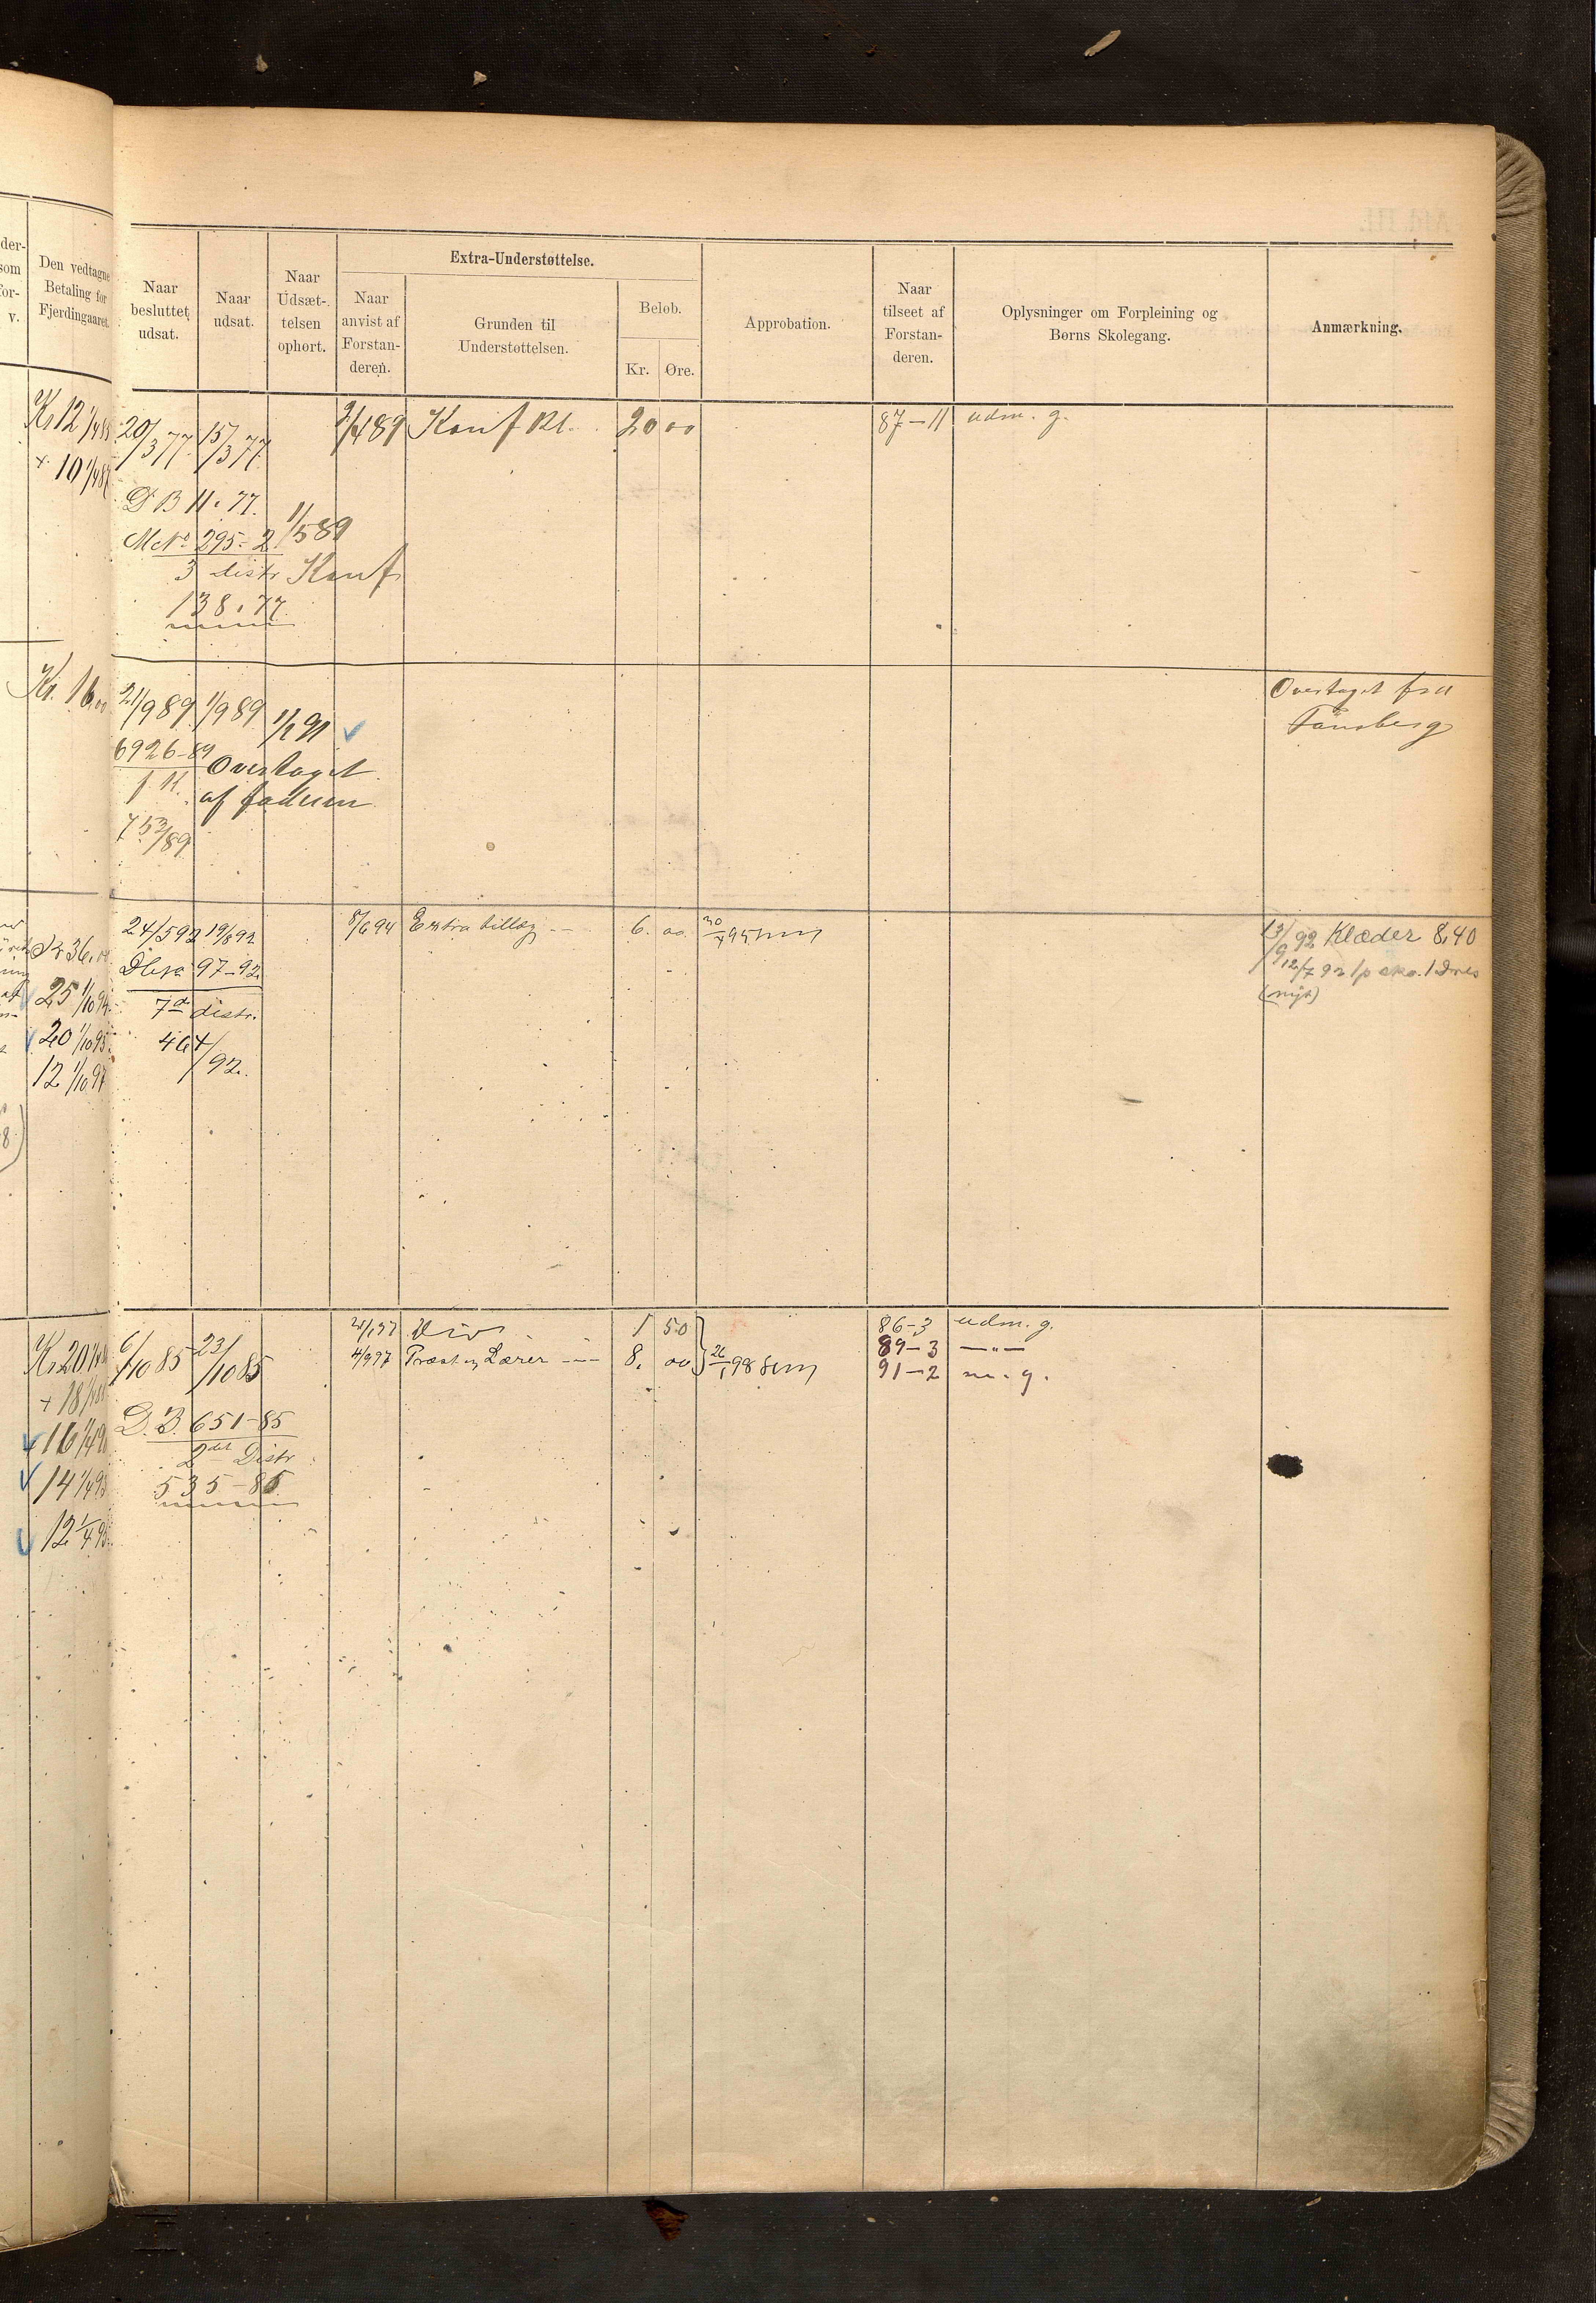 Den vedtagne
Betaling for
Fjerdingaaret.
Naar
besluttet
udsat.
Naar
udsat.
Naar
Udsæt-
telsen
ophørt.
Extra-Understøttelse.
Naar
anvist af
Forstan-
deren.
Grunden til
Understøttelsen.
Beløb.
Kr.
Øre.
Approbation.
Naar
tilseet af
Forstan-
deren.
Oplysninger om Forpleining og
Børns Skolegang.
Anmærkning.
Kr 12
20/3 77. 15/3 77.
2/4 89 Konf Kl. 20 00
87-11 udm. g.
+ 10
D B 11. 77.
295-2
1/5 89
3 distr Konf
138. 77.
Kr. 16
21/9 89 1/9 89 1/1 91
Overtaget fra
Tönsberg
6926-89
Overtaget
af faderen
753/89
36
24/5 92 19/8 92
8/6 94 Extra tillæg 6. 00.
30/4 95
13/9 92 Klæder 8,40
97-92
12/7 92 1 p sko. 1 Dres
(nyt)
25 1/10 94
7de distr.
20 1/10 95
464/92.
12 1/10 97
Kr 20
6/10 85 23/10 85
Div 1 50
86-3 udm. g.
4/9 97 Præst og Lærer 8. 00
26/1 98
89-3 —"—
91-2 m. g.
+ 18
16
D. B. 651-85
2det Distr
14
535-85
12